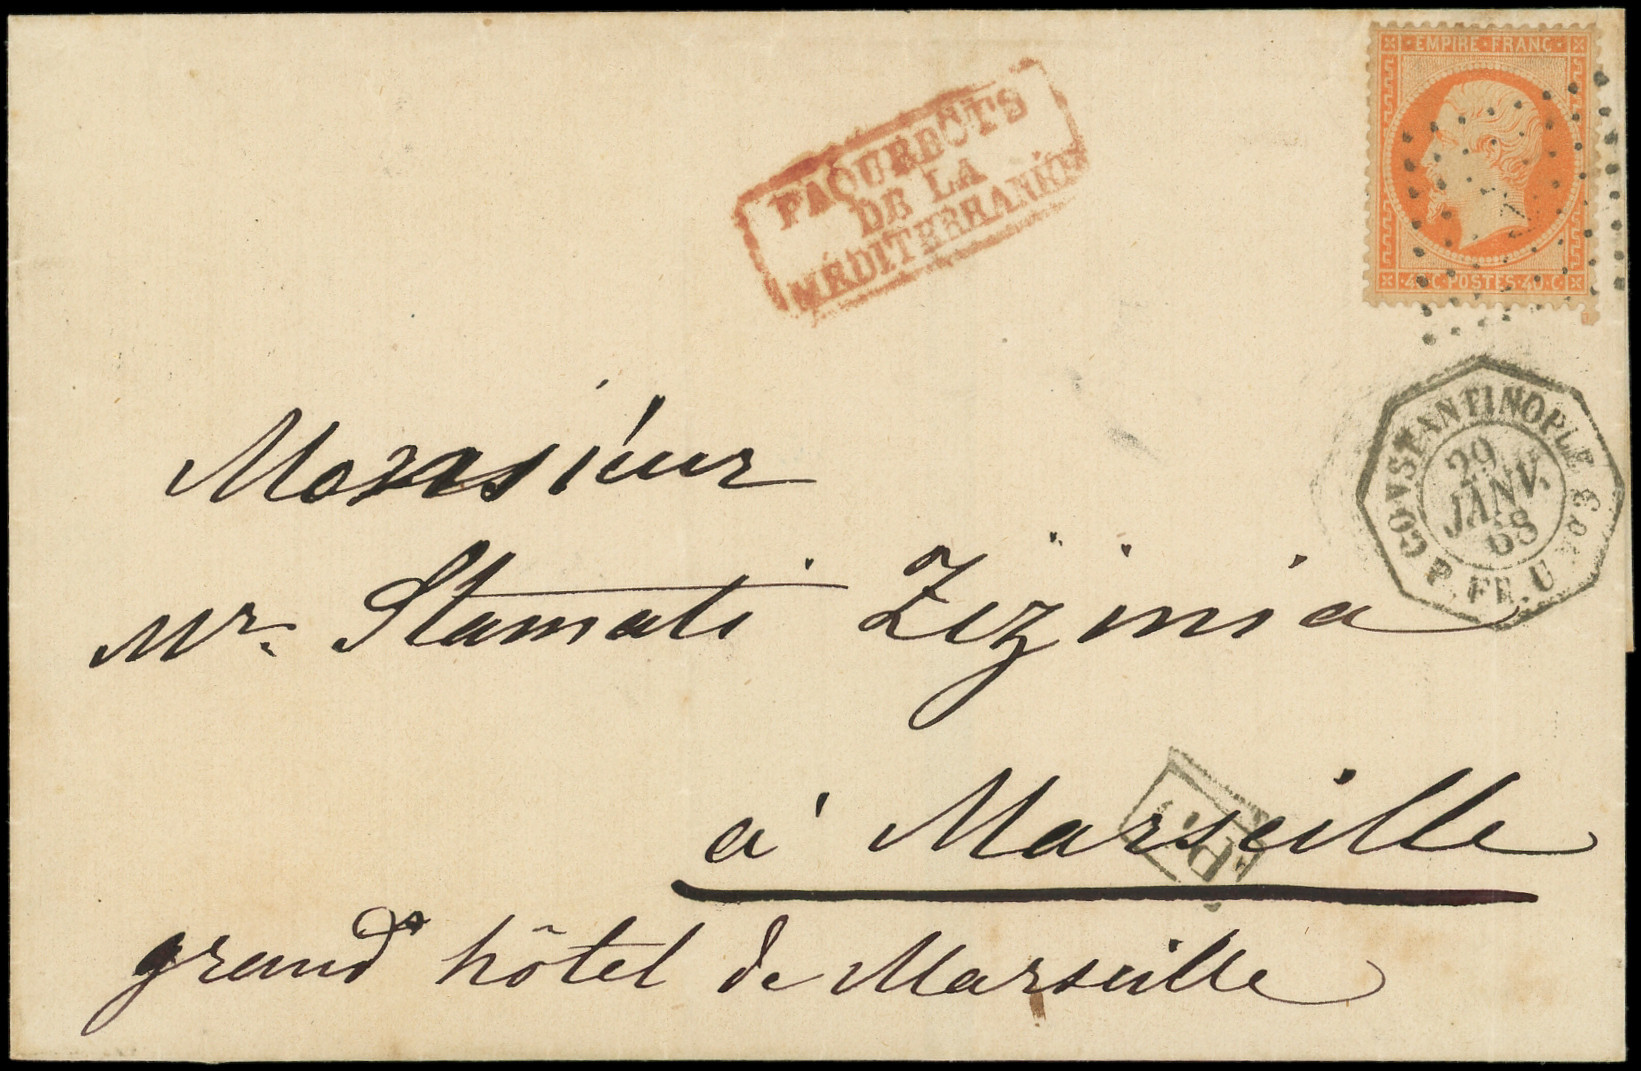 EMPIRE · FRANC
40 · C · POSTES · 40 · C
PAQUEBOTS
DE LA
MÉDITERRANÉE
CONSTANTINOPLE
29
JANV.
68
P. FR. U Nº 3
Monsieur
Mr. Stamati Zizinia
à Marseille
P.P.
grand hôtel de Marseille